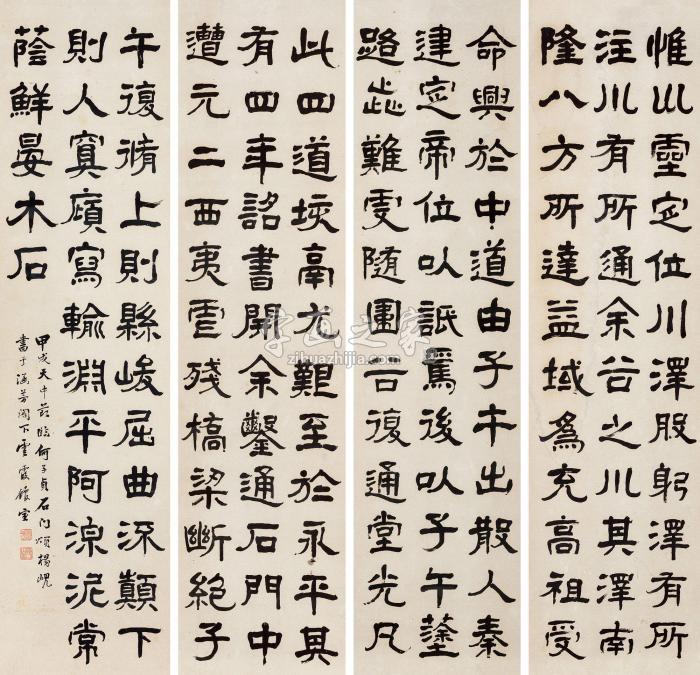 惟山靈定位川澤股躬澤有所
注川有所通余谷之川其澤南
隆八方所達益域為充高祖受
命興於中道由子午出散入秦
建定帝位以詆焉後以子午塗
路歮難更隨圍谷復通堂光凡
此四道垓鬲尤艱至於永平其
有四年詔書開余鑿通石門中
遭元二西夷虐殘橋梁斷絕子
午復循上則縣峻屈曲流顛下
則人寞廎寫輸淵平阿湶泥常
蔭鮮晏木石
甲戌天中節臨何子貞石門頌楊峴
書于芳閣下雲霞
字画之家
zihuazhijia.com